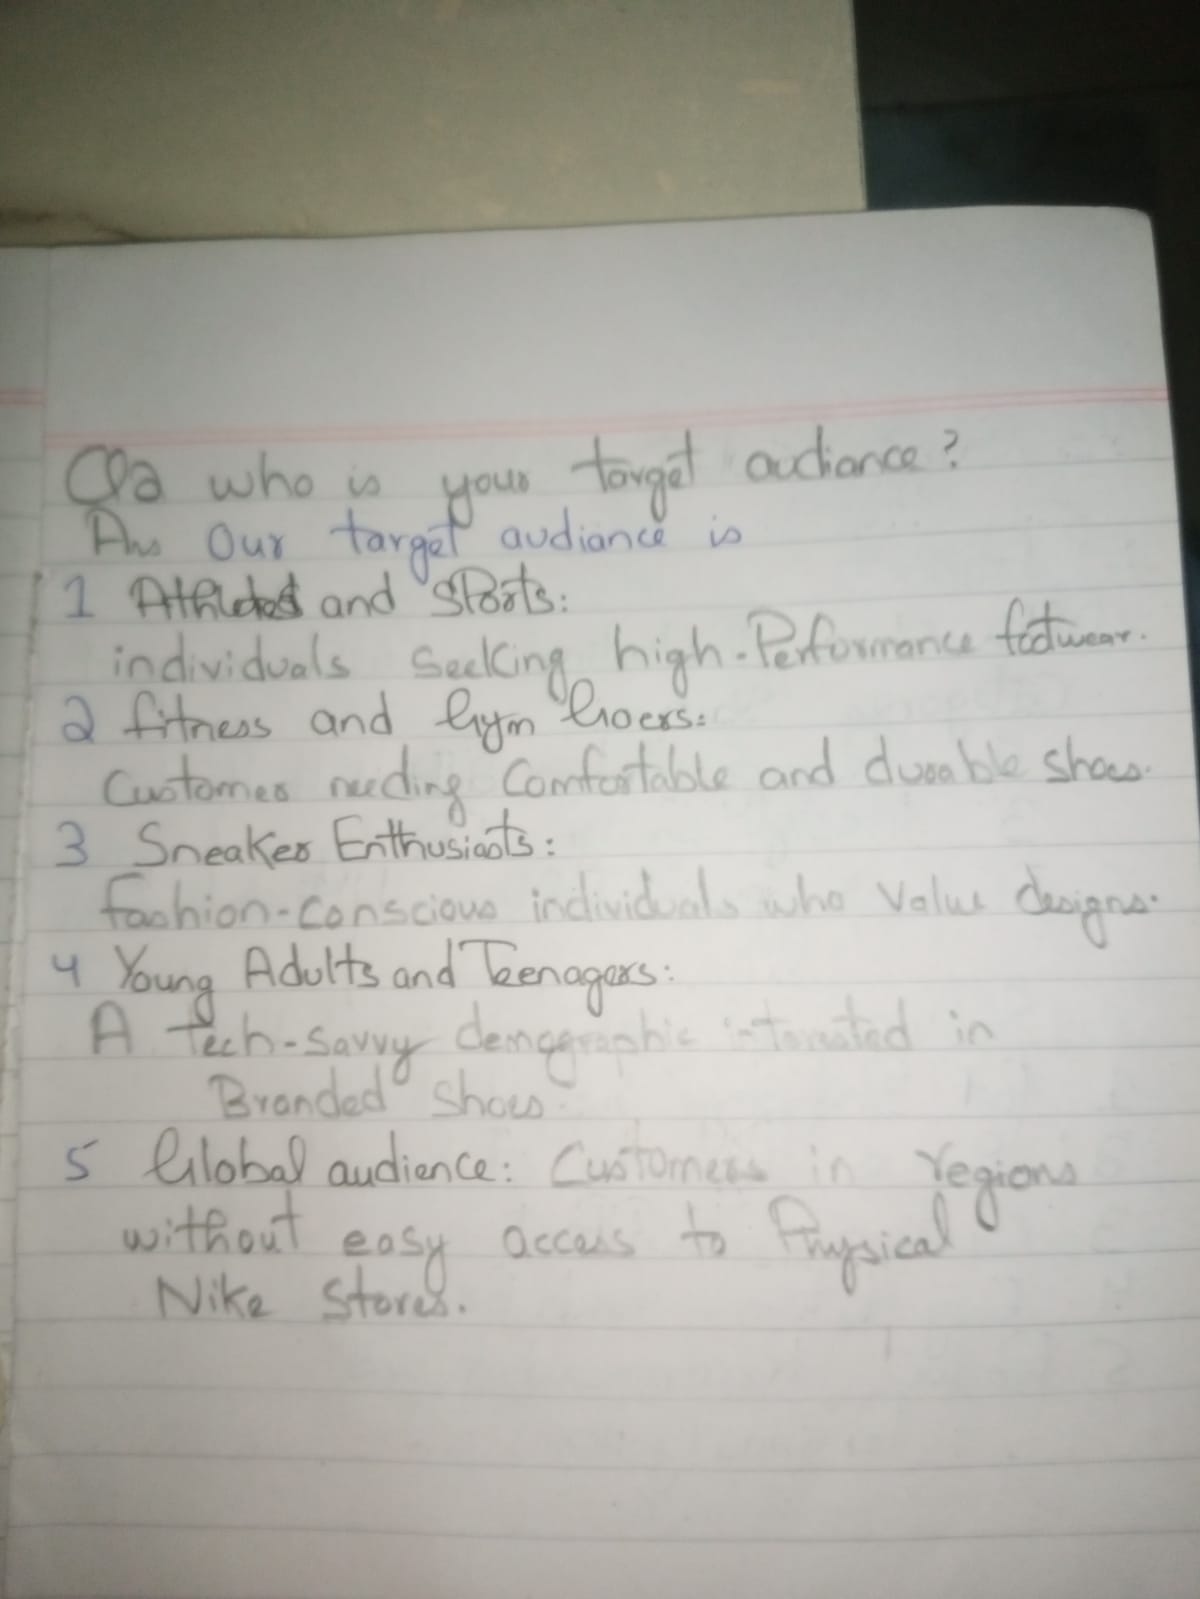 Q2 who is your target audiance?
Ans Our target audiance is
1 Athletes and Sports:
individuals Seeking high-Performance footwear.
2 fitness and Gym Goers:
Customer needing Comfortable and durable shoes.
3 Sneaker Enthusiasts:
fashion-Conscious individuals who Value designs.
4 Young Adults and Teenagers:
A Tech-Savvy demographic interested in
Branded Shoes.
5 Global audience: Customers in regions
without easy access to Physical
Nike Stores.